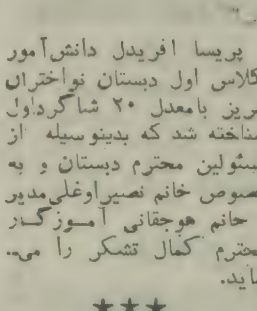 پریسا افریدل دانش‌آموز
کلاس اول دبستان نواختران
بریز بامعدل ۲۰ شاگرداول
شناخته شد که بدینوسیله از
سئولین محترم دبستان و به
صوص خانم نصیراوغلی‌مدیر
خانم هوجقانی آموزگار
محترم کمال تشکر را می‌-
ماید.
★★★